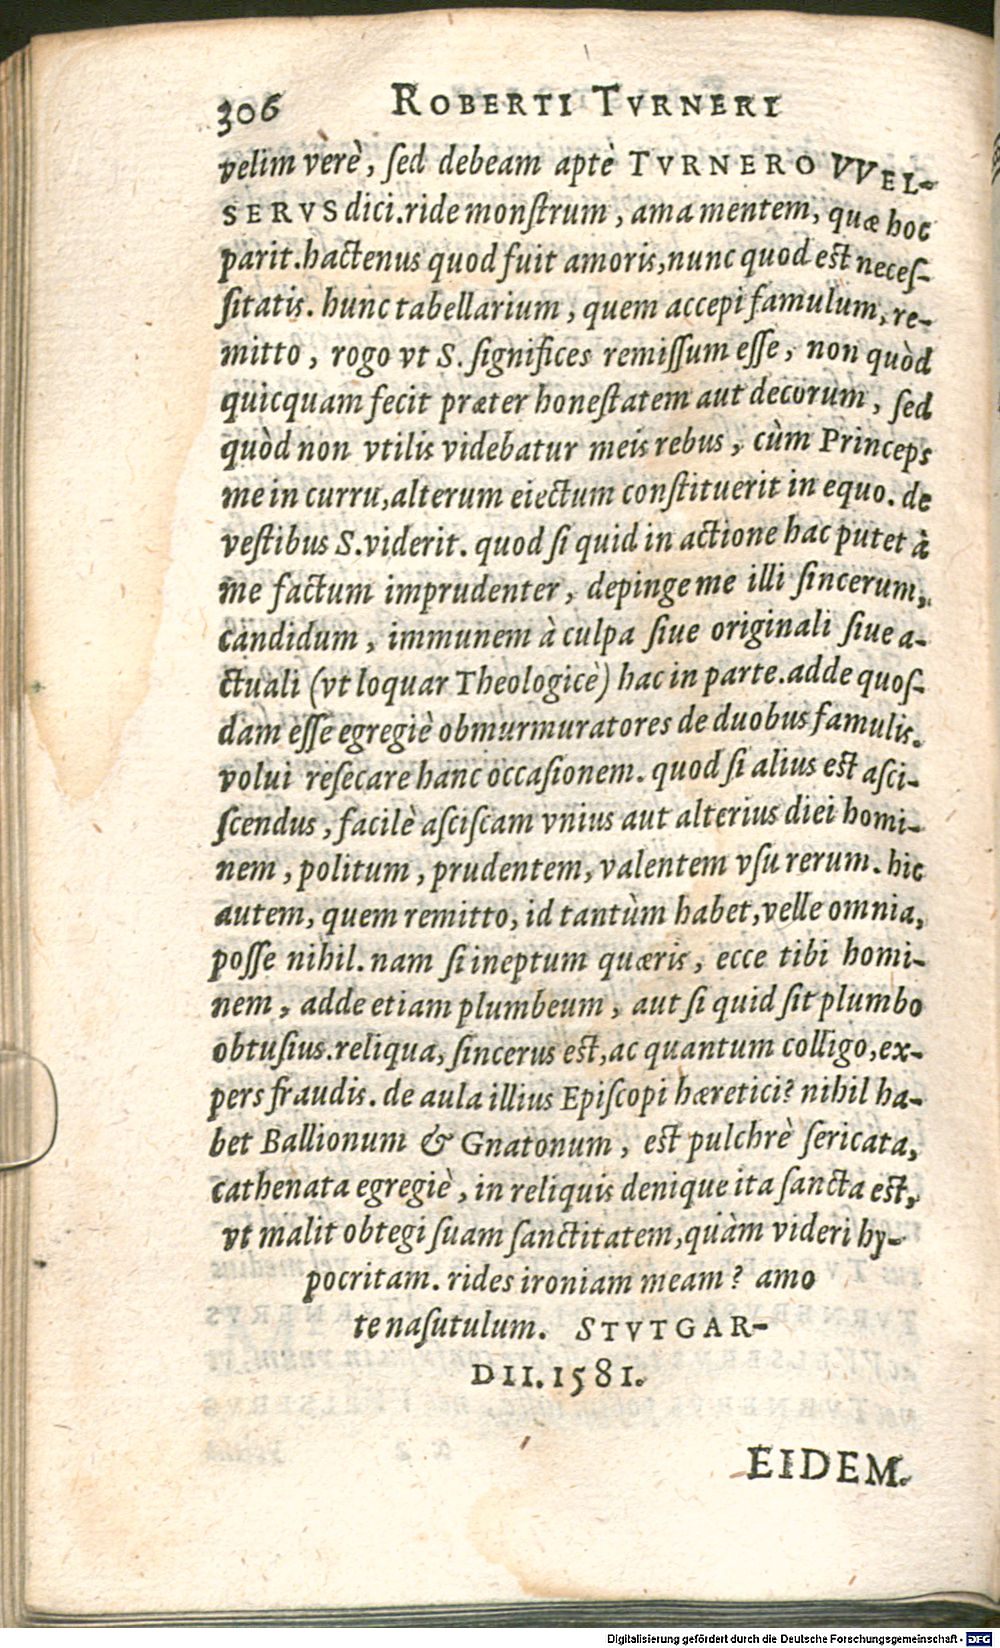 306 ROBERTI TVRNERI
velim verè, ſed debeam aptè TVRNERO VVEL-
SERVS dici. ride monſtrum, ama mentem, quæ hoc
parit. hactenus quod fuit amoris, nunc quod eſt neceſ-
ſitatis. hunc tabellarium, quem accepi famulum, re-
mitto, rogo vt S. ſignifices remiſſum eſſe, non quòd
quicquam fecit præter honeſtatem aut decorum, ſed
quòd non vtilis videbatur meis rebus, cùm Princeps
me in curru, alterum eiectum conſtituerit in equo. de
veſtibus S. viderit. quod ſi quid in actione hac putet à
me factum imprudenter, depinge me illi ſincerum,
candidum, immunem à culpa ſiue originali ſiue a-
ctuali (vt loquar Theologicè) hac in parte. adde quoſ-
dam eſſe egregiè obmurmuratores de duobus famulis.
volui reſecare hanc occaſionem. quod ſi alius eſt aſci-
ſcendus, facilè aſciſcam vnius aut alterius diei homi-
nem, politum, prudentem, valentem vſu rerum. hic
autem, quem remitto, id tantùm habet, velle omnia,
poſſe nihil. nam ſi ineptum quæris, ecce tibi homi-
nem, adde etiam plumbeum, aut ſi quid ſit plumbo
obtuſius. reliqua, ſincerus eſt, ac quantum colligo, ex-
pers fraudis. de aula illius Epiſcopi hæretici? nihil ha-
bet Ballionum & Gnatonum, eſt pulchrè ſericata,
cathenata egregiè, in reliquis denique ita ſancta eſt,
vt malit obtegi ſuam ſanctitatem, quàm videri hy-
pocritam. rides ironiam meam? amo
te naſutulum. STVTGAR-
DII. 1581.
EIDEM.
Digitalisierung gefördert durch die Deutsche Forschungsgemeinschaft - DFG